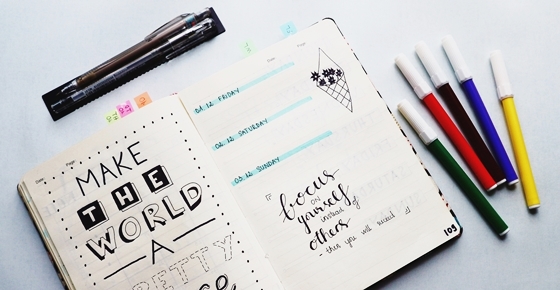 Date: Page:
MAKE
THE
WORLD
A
PRETTY
Date: Page:
01.12 FRIDAY
02.12 SATURDAY
03.12 SUNDAY
focus
on
yourself
instead of
others
- then you will succeed :)
103